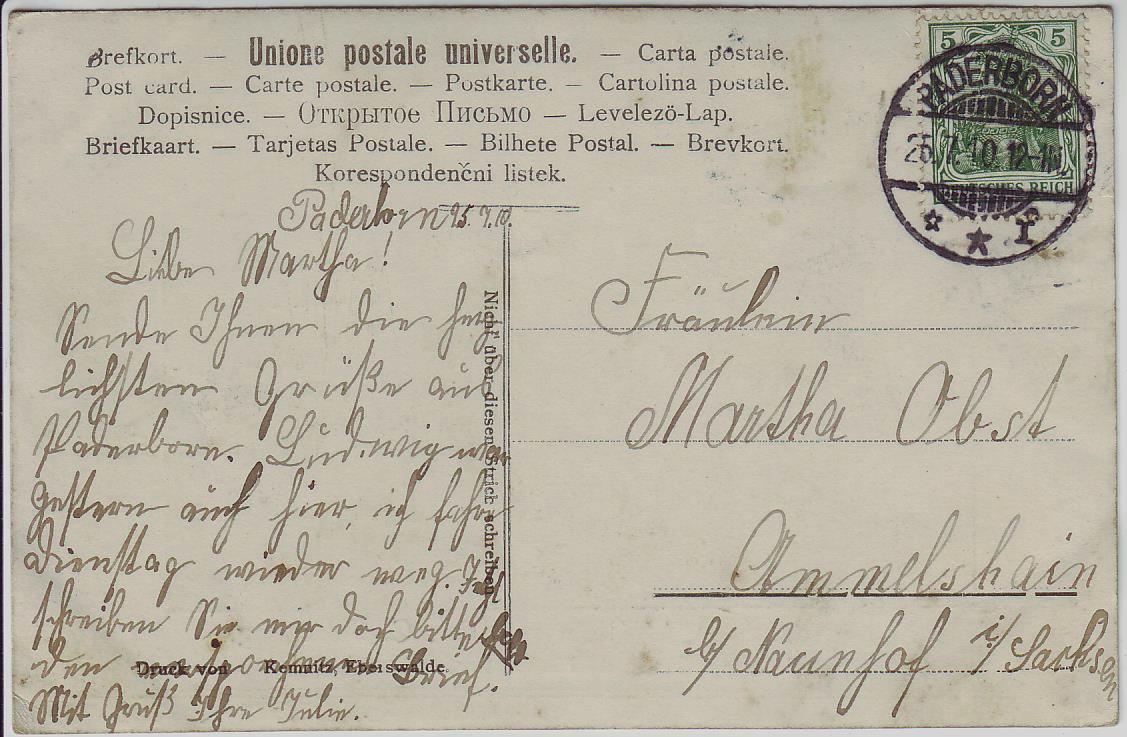 Brefkort. — Unione postale universelle. — Carta postale.
Post card. — Carte postale. — Postkarte. — Cartolina postale.
Dopisnice. — Открытое Письмо — Levelezö-Lap.
Briefkaart. — Tarjetas Postale. — Bilhete Postal. — Brevkort.
Korespondenčni listek.
5 5
DEUTSCHES REICH
PADERBORN
26.7.10.12-
* ★ I
Paderborn 25.7.10.
Liebe Martha!
Sende Ihnen die herz
lichsten Grüße aus
Paderborn. Ludwig war
gestern auch hier, ich fahre
Dienstag wieder weg.
schreiben Sie mir doch bitte
den Brief.
Mit Gruß Ihre Julie.
Nicht über diesen Strich schreiben
Druck von Kemnitz, Eberswalde
Fräulein
Martha Obst
Ammelshain
b/ Naunhof i/ Sachsen